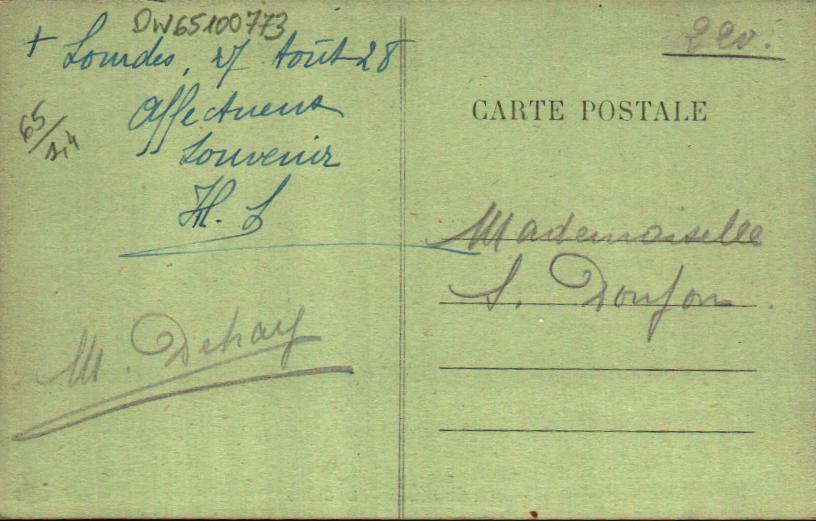 DW65100773
+ Lourdes, 27 Août 28
Affectueux
Souvenir
H. L
65/
220.
CARTE POSTALE
Mademoiselle
S. Donjon.
M. Dehay